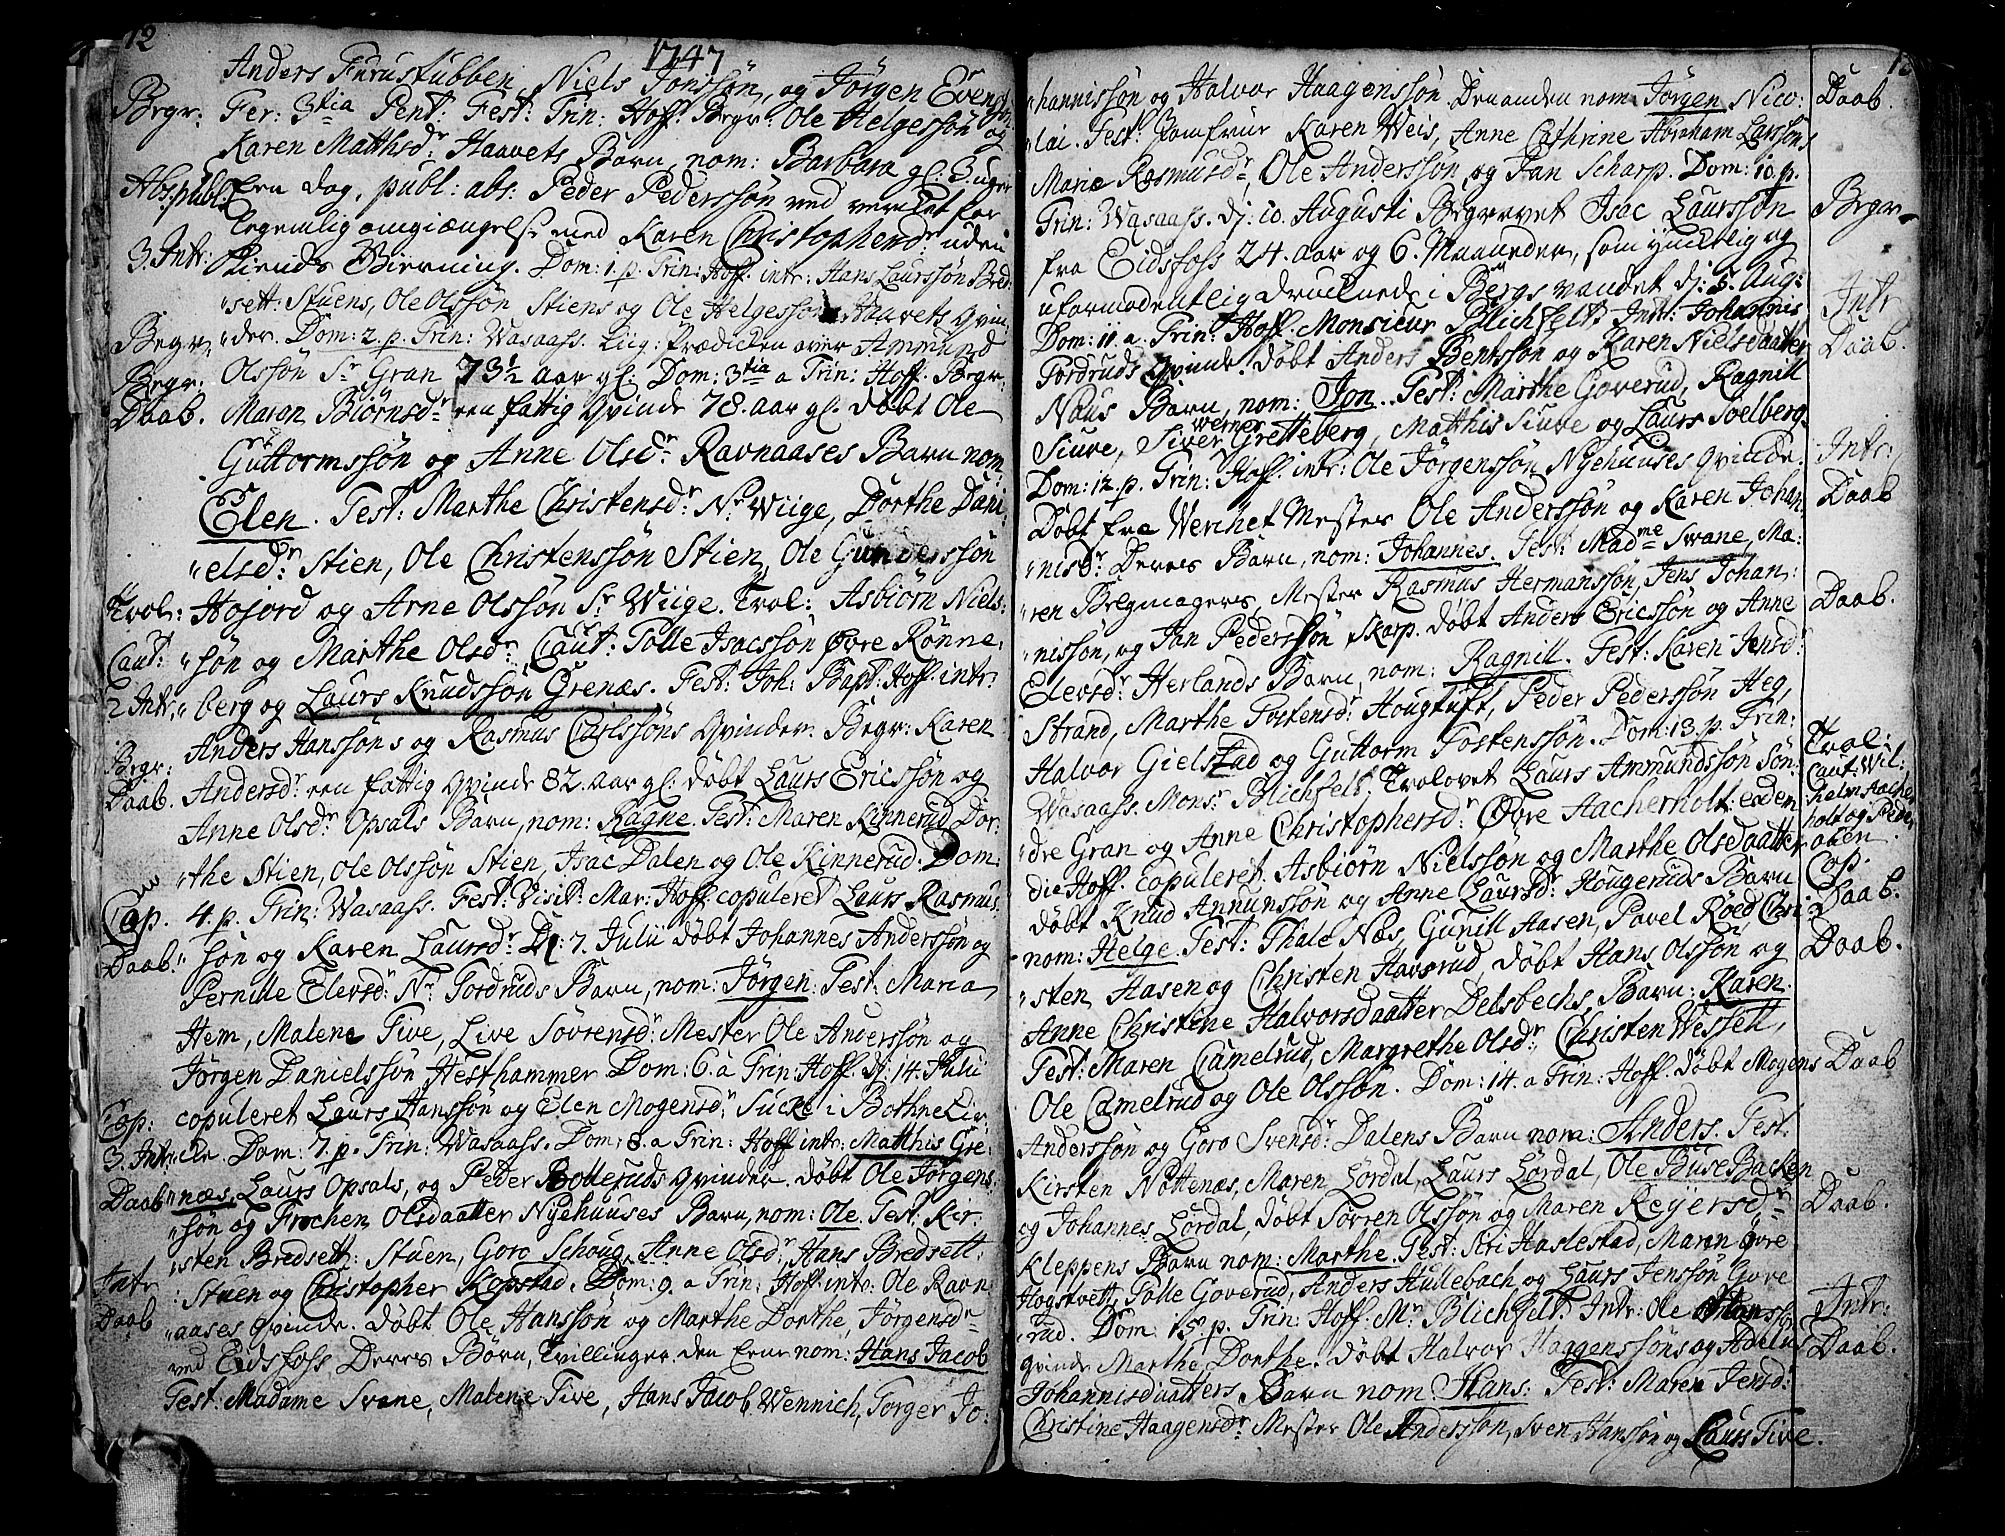 12
1747
Anders Furustubben, Niels Jonssøn, og Jørgen Evens
Begr: Fer: 3tia Pent: Fest: Trin: Hoff. Begr. Ole Helgessøn og
Karen Matthisdr Haavets Barn, nom: Barbara gl: 3 uger
Abs: publ: Een dag, publ: abs: Peder Pederssøn ved verket for
legemlig omgiængelse med Karen Christophersdr uden
3. Intr: Dom: 1. p. Trin: Hoff. intr: Hans Laurssøn Bred
"sett: Stuens, Ole Olssøn Stiens og Ole Helgessøn Haavets qvin,
Begr. "der. Dom: 2. p. Trin: Wasaass. Liig: Prædicken over Ammund
Begr: Olssøn Sr Gran 73½ aar gl. Dom: 3tia a Trin: Hoff. Begr.
Daab. Maren Biørnsdr een fattig qvinde 78. aar gl. døbt Ole
Guttormssøn og Anne Olsdr Ravnaases Barn nom:
Elen. Test: Marthe Christensdr Nr Wiige, Dorthe Dani
"elsdr Stien, Ole Christenssøn Stien, Ole Gunderssøn
Trol: Hojord og Arne Olssøn Sr Wiige. Trol: Asbiørn Niels:
Caut: "søn og Marthe Olsdr. Caut: Tolle Isacssøn Øvre Rønne,
2 Intr. "berg og Laurs Knudssøn Grenæs. Fest: Joh: Bapt: Hoff. intr:
Anders Hanssøns og Rasmus Carlssøns Qvinder. Begr: Karen
Begr: Andersdr een fattig qvinde 82. aar gl: døbt Laurs Ericssøn og
Daab. Anne Olsdr Opsals Barn, nom: Ragne. Test: Maren Kinnerud, Dor:
"the Stien, Ole Olssøn Stien, Isac Dalen og Ole Kinnerud. Dom:
Cop. 4. p. Trin: Wasaass. Fest: Visit: Mar: Hoff: copuleret Laurs Rasmus,
Daab. "søn og Karen Laursdr D: 7. Julii døbt Johannes Anderssøn og
Pernille Elevsdr Nr Tordruds Barn, nom: Jørgen: Test: Maria
Hem, Malene Tive, Live Sørrensdr Mester Ole Anderssøn og
Jørgen Danielssøn Hesthammer Dom: 6. a Trin: Hoff. d: 14. Julii
Cop: copuleret Laurs Hanssøn og Elen Mogensdr Sucke i Bothne
3. Intr: Dom: 7. p. Trin: Wasaass. Dom: 8. a Trin: Hoff intr: Matthis Gre:
Daab "næs, Laurs Opsals, og Peder Botteruds Qvinder. døbt Ole Jørgens
"søn og Frochen Olsdaatter Nyehuuses Barn, nom: Ole. Test: Kir:
"sten Bredsett: Stuen, Goro Schoug, Anne Olsdr, Hans Bredsett:
Intr "Stuen og Christopher Kopstad. Dom: 9. a Trin: Hoff: intr: Ole Ravn
Daab "aases Qvinde. døbt Ole Hanssøn og Marthe Dorthe, Jørgensdr
ved Eidsfoss Deres Børn, Tvillinger. den Eene nom: Hans Jacob
Test: Madame Svane, Malene Tive, Hans Jacob Wennich, Torger Jo:
"hannissøn og Halvor Haagenssøn. Den anden nom: Jørgen Nico: Daab.
"lai. Test: Jomfrue Karen Weis, Anne Cathrine Abraham Larssøns
Marie Rasmusdr, Ole Anderssøn, og Jan Scharp. Dom: 10. p.
Trin: Wasaass. d: 10. Augusti Begravet Isac Laurssøn Begr.
fra Eidsfoss 24. aar og 6. Maaneder, som ynckelig og
uformodentlig druknede i Bergs vandet d: 5. Aug: Intr
Dom: 11. a. Trin: Hoff. Monsieur Blichfelt. Intr: Johannis
Tordruds Qvinde. døbt Anders Bentssøn og Karen Nielsdaatter Daab.
Naus Barn, nom: Jon. Test: Marthe Goverud, Ragnill
Siuve, Siver Werner Gretteberg, Matthis Siuve og Laurs Soelberg.
Dom: 12. p. Trin: Hoff. intr: Ole Jørgenssøn Nyehuuses Qvinde. Intr:
Døbt fra Werchet Mester Ole Anderssøn og Karen Johan Daab
"nisdr Deres Barn, nom: Johannes. Test: Madme Svane, Ma:
"ren Belgmagers, Mester Rasmus Hermanssøn, Jens Johan:
"nissøn, og Jan Pederssøn Skarp. døbt Anders Ericssøn og Anne Daab.
Elevsdr Herlands Barn, nom: Ragnill. Test: Karen Jensdr
Strand, Marthe Tostensdr Hougtuft, Peder Pederssøn Heg,
Halvor Gielstad og Guttorm Tostenssøn. Dom: 13. p. Trin: Trol:
Wasaass. Monsr Blichfelt. Trolovet Laurs Ammundssøn Søn: Caut: Wil:
"dre Gran og Anne Christophersdr Øvre Aacherholt: eoden "helm Aacher
die Hoff. copuleret Asbiørn Nielssøn og Marthe Olsdaatter holt og Peder
døbt Knud Annunssøn og Anne Laursdr Hougeruds Barn Cop.
nom: Helge. Test: Thale Næs, Gunill Aasen, Pavel Røed Chri: Daab.
"sten Aasen og Christen Havsrud, døbt Hans Olssøn og Daab.
Anne Christine Halvorsdaatter Delsbechs Barn: Karen.
Test: Maren Camelrud, Margrethe Olsdr, Christen Wessell,
Ole Camelrud og Ole Olssøn. Dom: 14. a Trin: Hoff. døbt Mogens Daab
Anderssøn og Goro Svensdr Dalens Barn nom: Anders. Test:
Kirsten Nøttenæs, Maren Lørdal, Laurs Lørdal, Ole Buse Backen
og Johannes Lørdal, døbt Sørren Olssøn og Maren Reyersdr Daab.
Kleppens Barn nom: Marthe. Test: Kri Haslestad, Maren Øvre
Hogstvett, Tolle Goverud, Anders Hullebach og Laurs Jenssøn Gove
"rud. Dom: 15. p. Trin: Hoff. Mr Blichfelt. Intr: Ole Hanssøns Intr:
qvinde Marthe Dorthe. døbt Halvor Haagenssøns og Daab.
Johannisdaatters Barn nom: Hans: Test: Maren Jensdr
Christine Haagensdr Mester Ole Anderssøn, Sven Hanssøn og Laurs Tive.